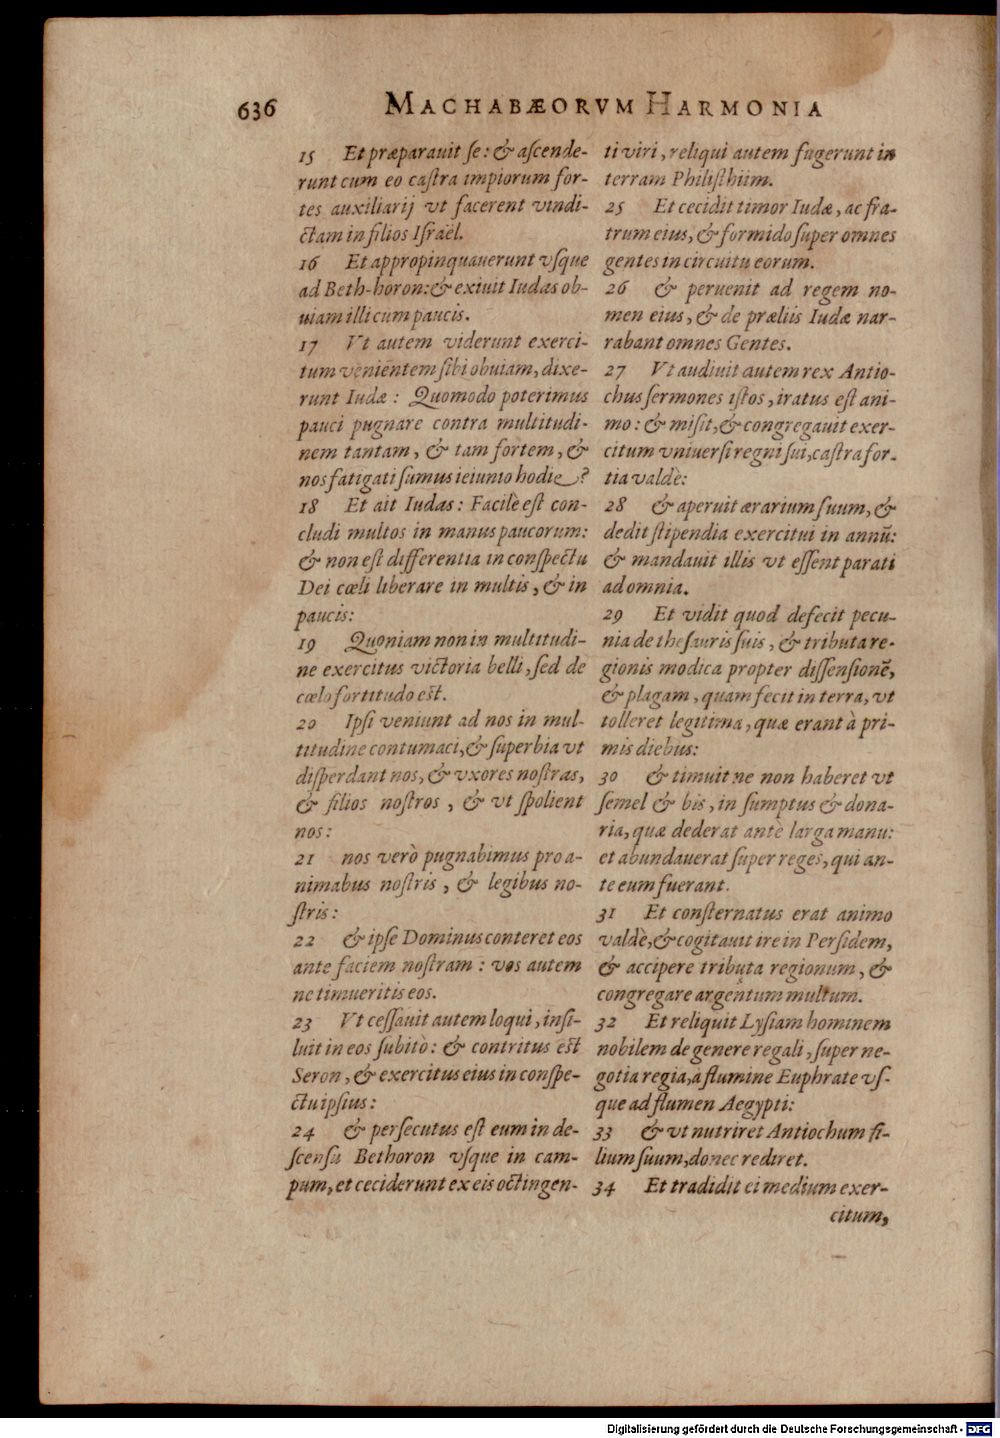 636
MACHABÆORVM HARMONIA
15 Et præparauit se: & ascende-
runt cum eo castra impiorum for-
tes auxiliarij vt facerent vindi-
ctam in filios Israël.
16 Et appropinquauerunt vsque
ad Beth-horon: & exiuit Iudas ob-
uiam illi cum paucis.
17 Vt autem viderunt exerci-
tum venientem sibi obuiam, dixe-
runt Iudæ: Quomodo poterimus
pauci pugnare contra multitudi-
nem tantam, & tam fortem, &
nos fatigati sumus ieiunio hodie?
18 Et ait Iudas: Facilè est con-
cludi multos in manus paucorum:
& non est differentia in conspectu
Dei cœli liberare in multis, & in
paucis:
19 Quoniam non in multitudi-
ne exercitus victoria belli, sed de
cœlo fortitudo est.
20 Ipsi veniunt ad nos in mul-
titudine contumaci, & superbia vt
disperdant nos, & vxores nostras,
& filios nostros, & vt spolient
nos:
21 nos verò pugnabimus pro a-
nimabus nostris, & legibus no-
stris:
22 & ipse Dominus conteret eos
ante faciem nostram: vos autem
ne timueritis eos.
23 Vt cessauit autem loqui, insi-
luit in eos subitò: & contritus est
Seron, & exercitus eius in conspe-
ctu ipsius:
24 & persecutus est eum in de-
scensu Bethoron vsque in cam-
pum, et ceciderunt ex eis octingen-
ti viri, reliqui autem fugerunt in
terram Philisthiim.
25 Et cecidit timor Iudæ, ac fra-
trum eius, & formido super omnes
gentes in circuitu eorum.
26 & peruenit ad regem no-
men eius, & de præliis Iudæ nar-
rabant omnes Gentes.
27 Vt audiuit autem rex Antio-
chus sermones istos, iratus est ani-
mo: & misit, & congregauit exer-
citum vniuersi regni sui, castra for-
tia valdè:
28 & aperuit ærarium suum, &
dedit stipendia exercitui in annũ:
& mandauit illis vt essent parati
ad omnia.
29 Et vidit quod defecit pecu-
nia de thesauris suis, & tributa re-
gionis modica propter dissensionẽ,
& plagam, quam fecit in terra, vt
tolleret legitima, quæ erant à pri-
mis diebus:
30 & timuit ne non haberet vt
semel & bis, in sumptus & dona-
ria, quæ dederat antè larga manu:
et abundauerat super reges, qui an-
te eum fuerant.
31 Et consternatus erat animo
valdè, & cogitauit ire in Persidem,
& accipere tributa regionum, &
congregare argentum multum.
32 Et reliquit Lysiam hominem
nobilem de genere regali, super ne-
gotia regia, a flumine Euphrate vs-
que ad flumen Aegypti:
33 & vt nutriret Antiochum fi-
lium suum, donec rediret.
34 Et tradidit ei medium exer-
citum,
Digitalisierung gefördert durch die Deutsche Forschungsgemeinschaft - DFG